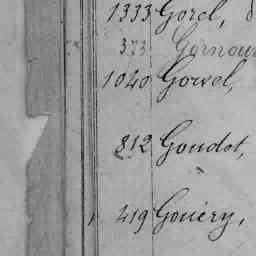 1333 Gorel,
373 Gornou
1040 Gorvel,
812 Goudot,
419 Gouéry,